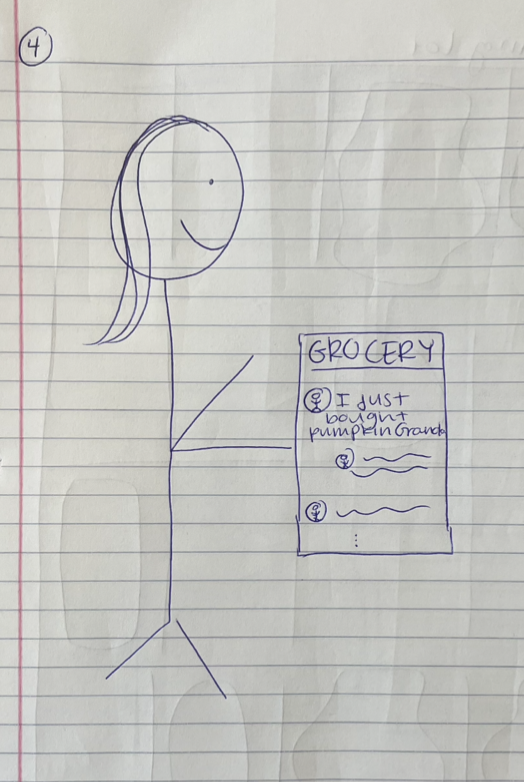 4
GROCERY
I just
bought
pumpkin Granola